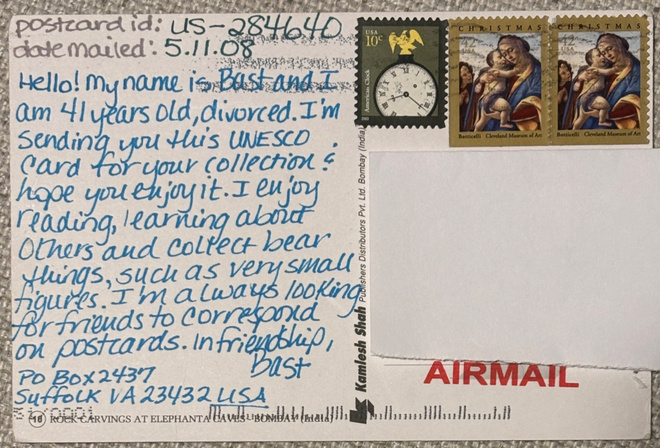 postcard id: US-284640
date mailed: 5.11.08
Hello! My name is Bast and I
am 41 years old, divorced. I'm
sending you this UNESCO
Card for your collection &
hope you enjoy it. I enjoy
reading, learning about
Others and collect bear
things, such as very small
figures. I'm always looking
for friends to correspond
on postcards. In friendship,
Bast
PO Box 2437
Suffolk VA 23432 USA
18 ROCK CARVINGS AT ELEPHANTA CAVES - BOMBAY (India)
Kamlesh Shah Publishers Distributors Pvt. Ltd. Bombay (India)
USA
10c
American Clock
CHRISTMAS
Botticelli Cleveland Museum of Art
CHRISTMAS
42
USA
Botticelli Cleveland Museum of Art
AIRMAIL